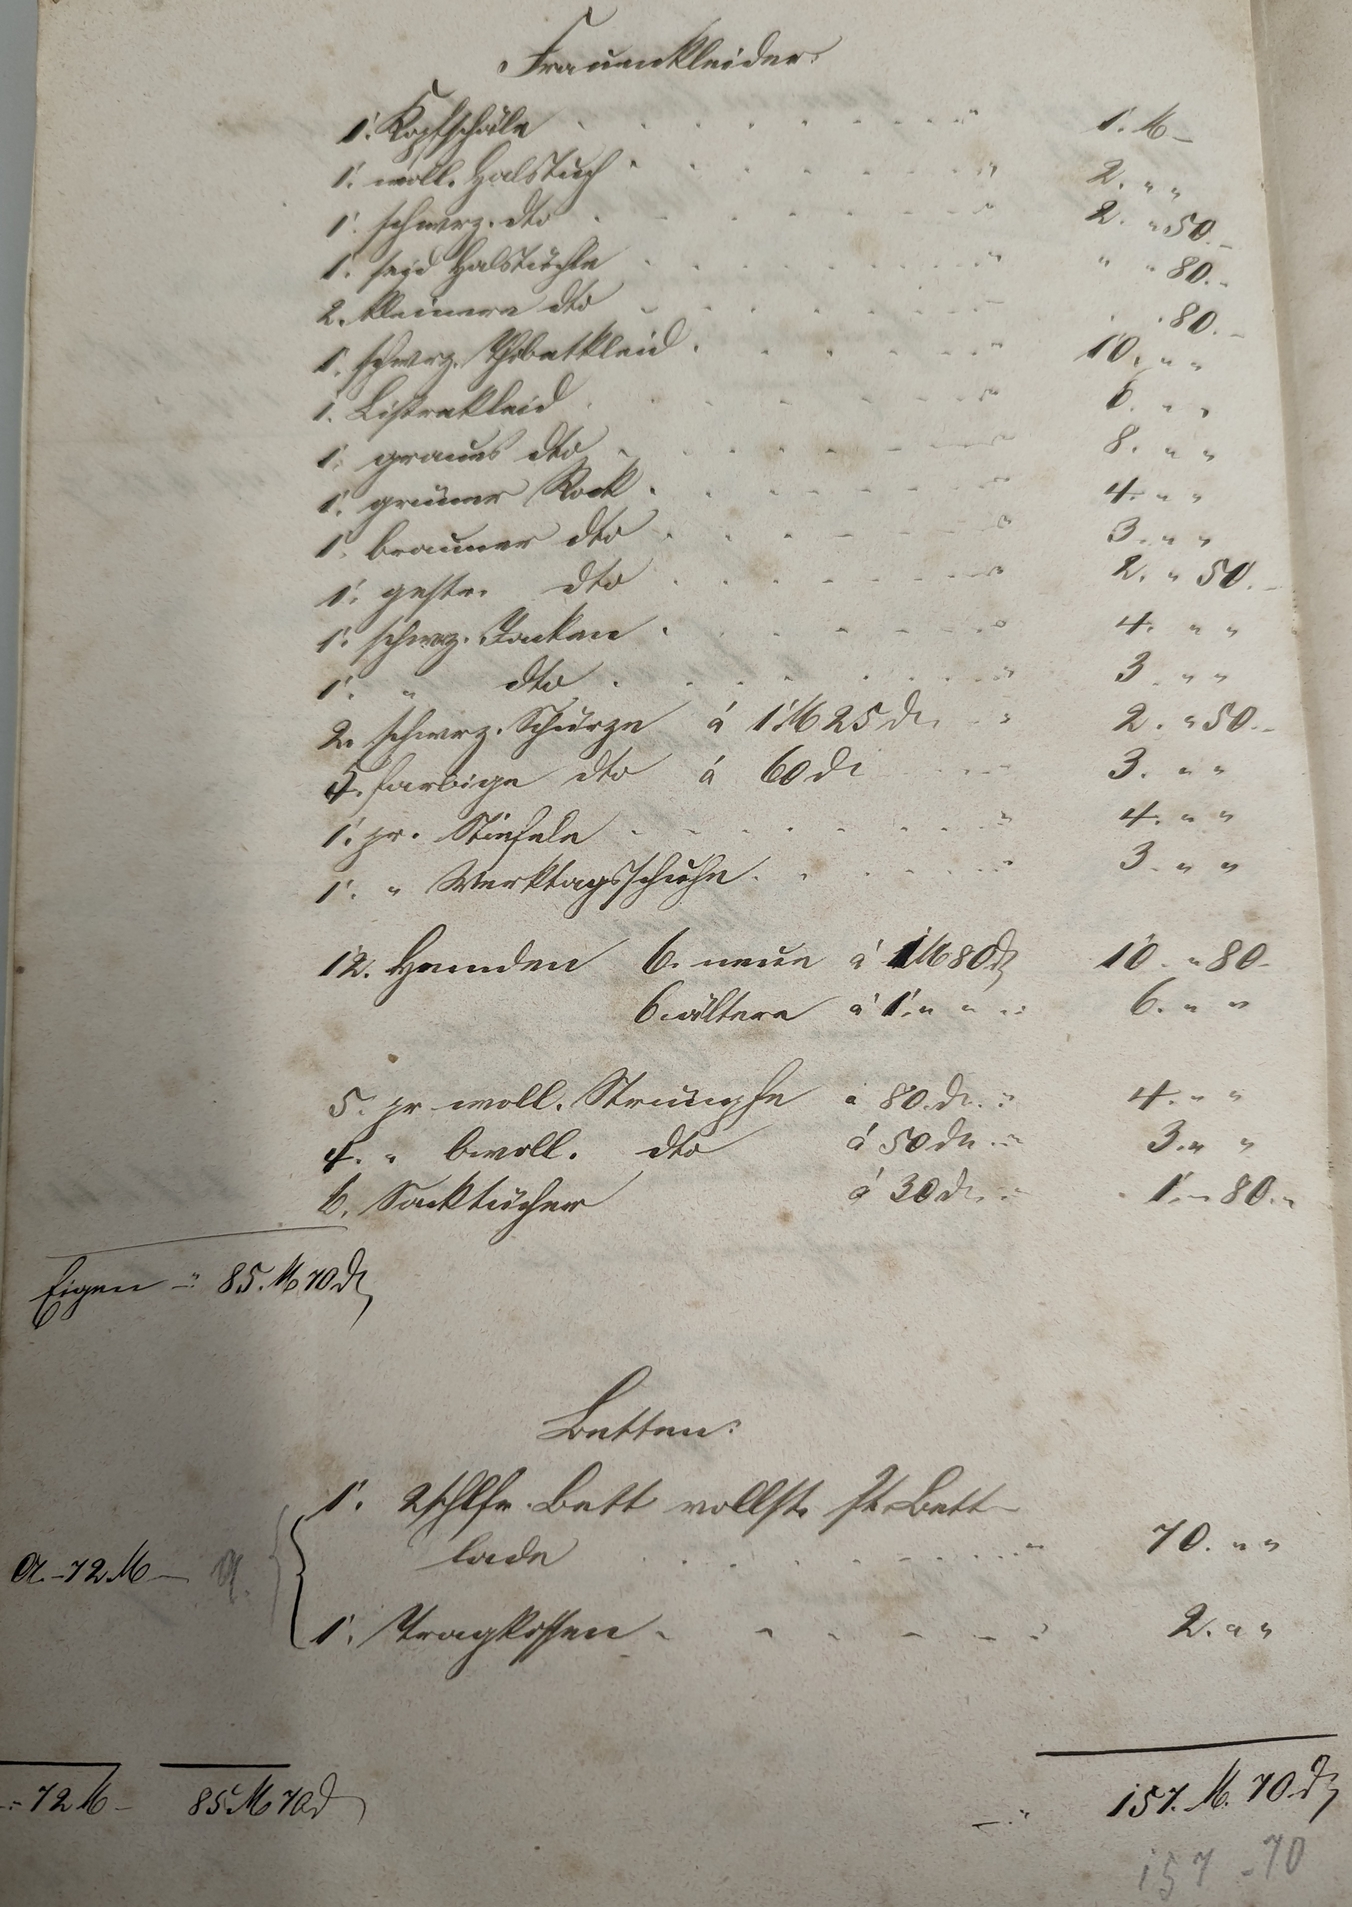 Frauenkleider
1. Kopfschäle " 1. M –
1. woll. Halstuch " 2. " "
1. schwrz. dto " 2. " 50. –
1. seid Halstüchle " " " 80. –
2. kleinere dto " 80. –
1. schwrz. Thibetkleid " 10. " "
1. Listrekleid " 6. " "
1. graues dto " 8. " "
1. grüner Rock " 4. " "
1. brauner dto " 3. " "
1. gestr. dto " 2. " 50. –
1. schwrz. Jacken " 4. " "
1. " dto " 3. " "
2. schwrz. Schürze á 1 M 25 d. " 2. " 50. –
5. farbige dto á 60 d. " 3. " "
1. pr. Stiefele " 4. " "
1. " Werktagsschuhe " 3. " "
12. Hemden 6. neue á 1 M 80 d. 10. " 80 –
6. ältere á 1. " " " 6. " "
5. pr woll. Strümpfe á 80. d. " 4. " "
4. " bwoll. dto á 50 d. " 3. " "
6. Sacktücher á 30 d. " 1. – 80. "
Eigen –" 85. M 70 d.
Betten:
1. 2schlfr. Bett vollst. st. Bett-
lade " 70. " "
A. – 72 M – A.
1. Tragkissen " 2. " "
–" 72 M – 85 M 70 d – " 157. M. 70. d.
157 – 70